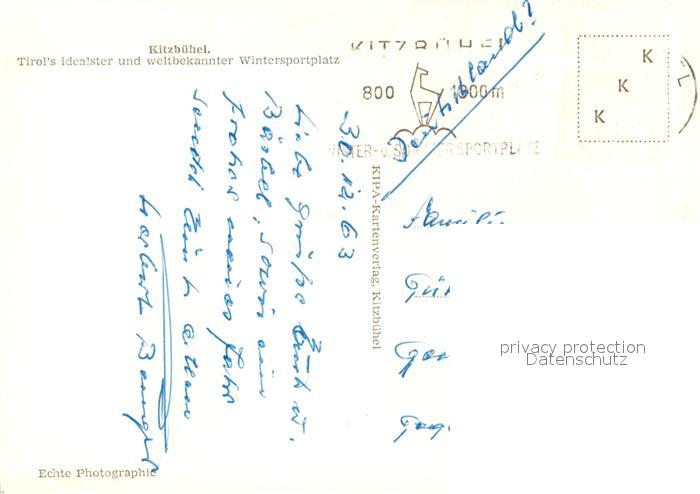 Kitzbühel.
Tirol's idealster und weltbekannter Wintersportplatz
KITZBÜHEL
800 1000m
WINTER-U. SOMMERSPORTPLATZ
Deutschland?
K
K
K
30.12.63
Liebe Grüße Euch u.
Bärbel, sowie ein
frohes neues Jahr
sendet Euch allen
Herbert
KIPA-Kartenverlag, Kitzbühel
Famili
privacy protection
Datenschutz
Echte Photographie